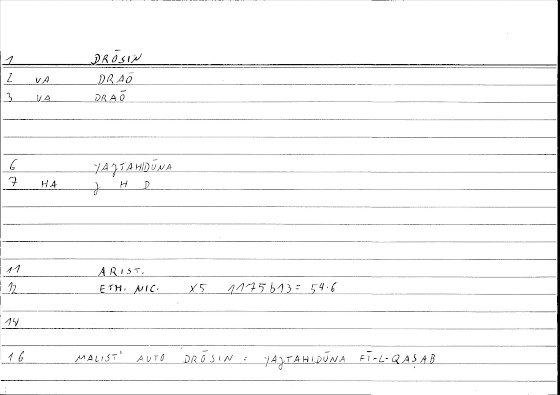 1 DRŌSIN
2 VA DRAŌ
3 VA DRAŌ
6 YAǧTAHIDŪNA
7 HA ǧ H D
11 ARIST.
12 ETH. NIC. X5 1175b13 = 54.6
14
16 MALIST' AUTO DRŌSIN = YAǧTAHIDŪNA FĪ-L-QAṢAB